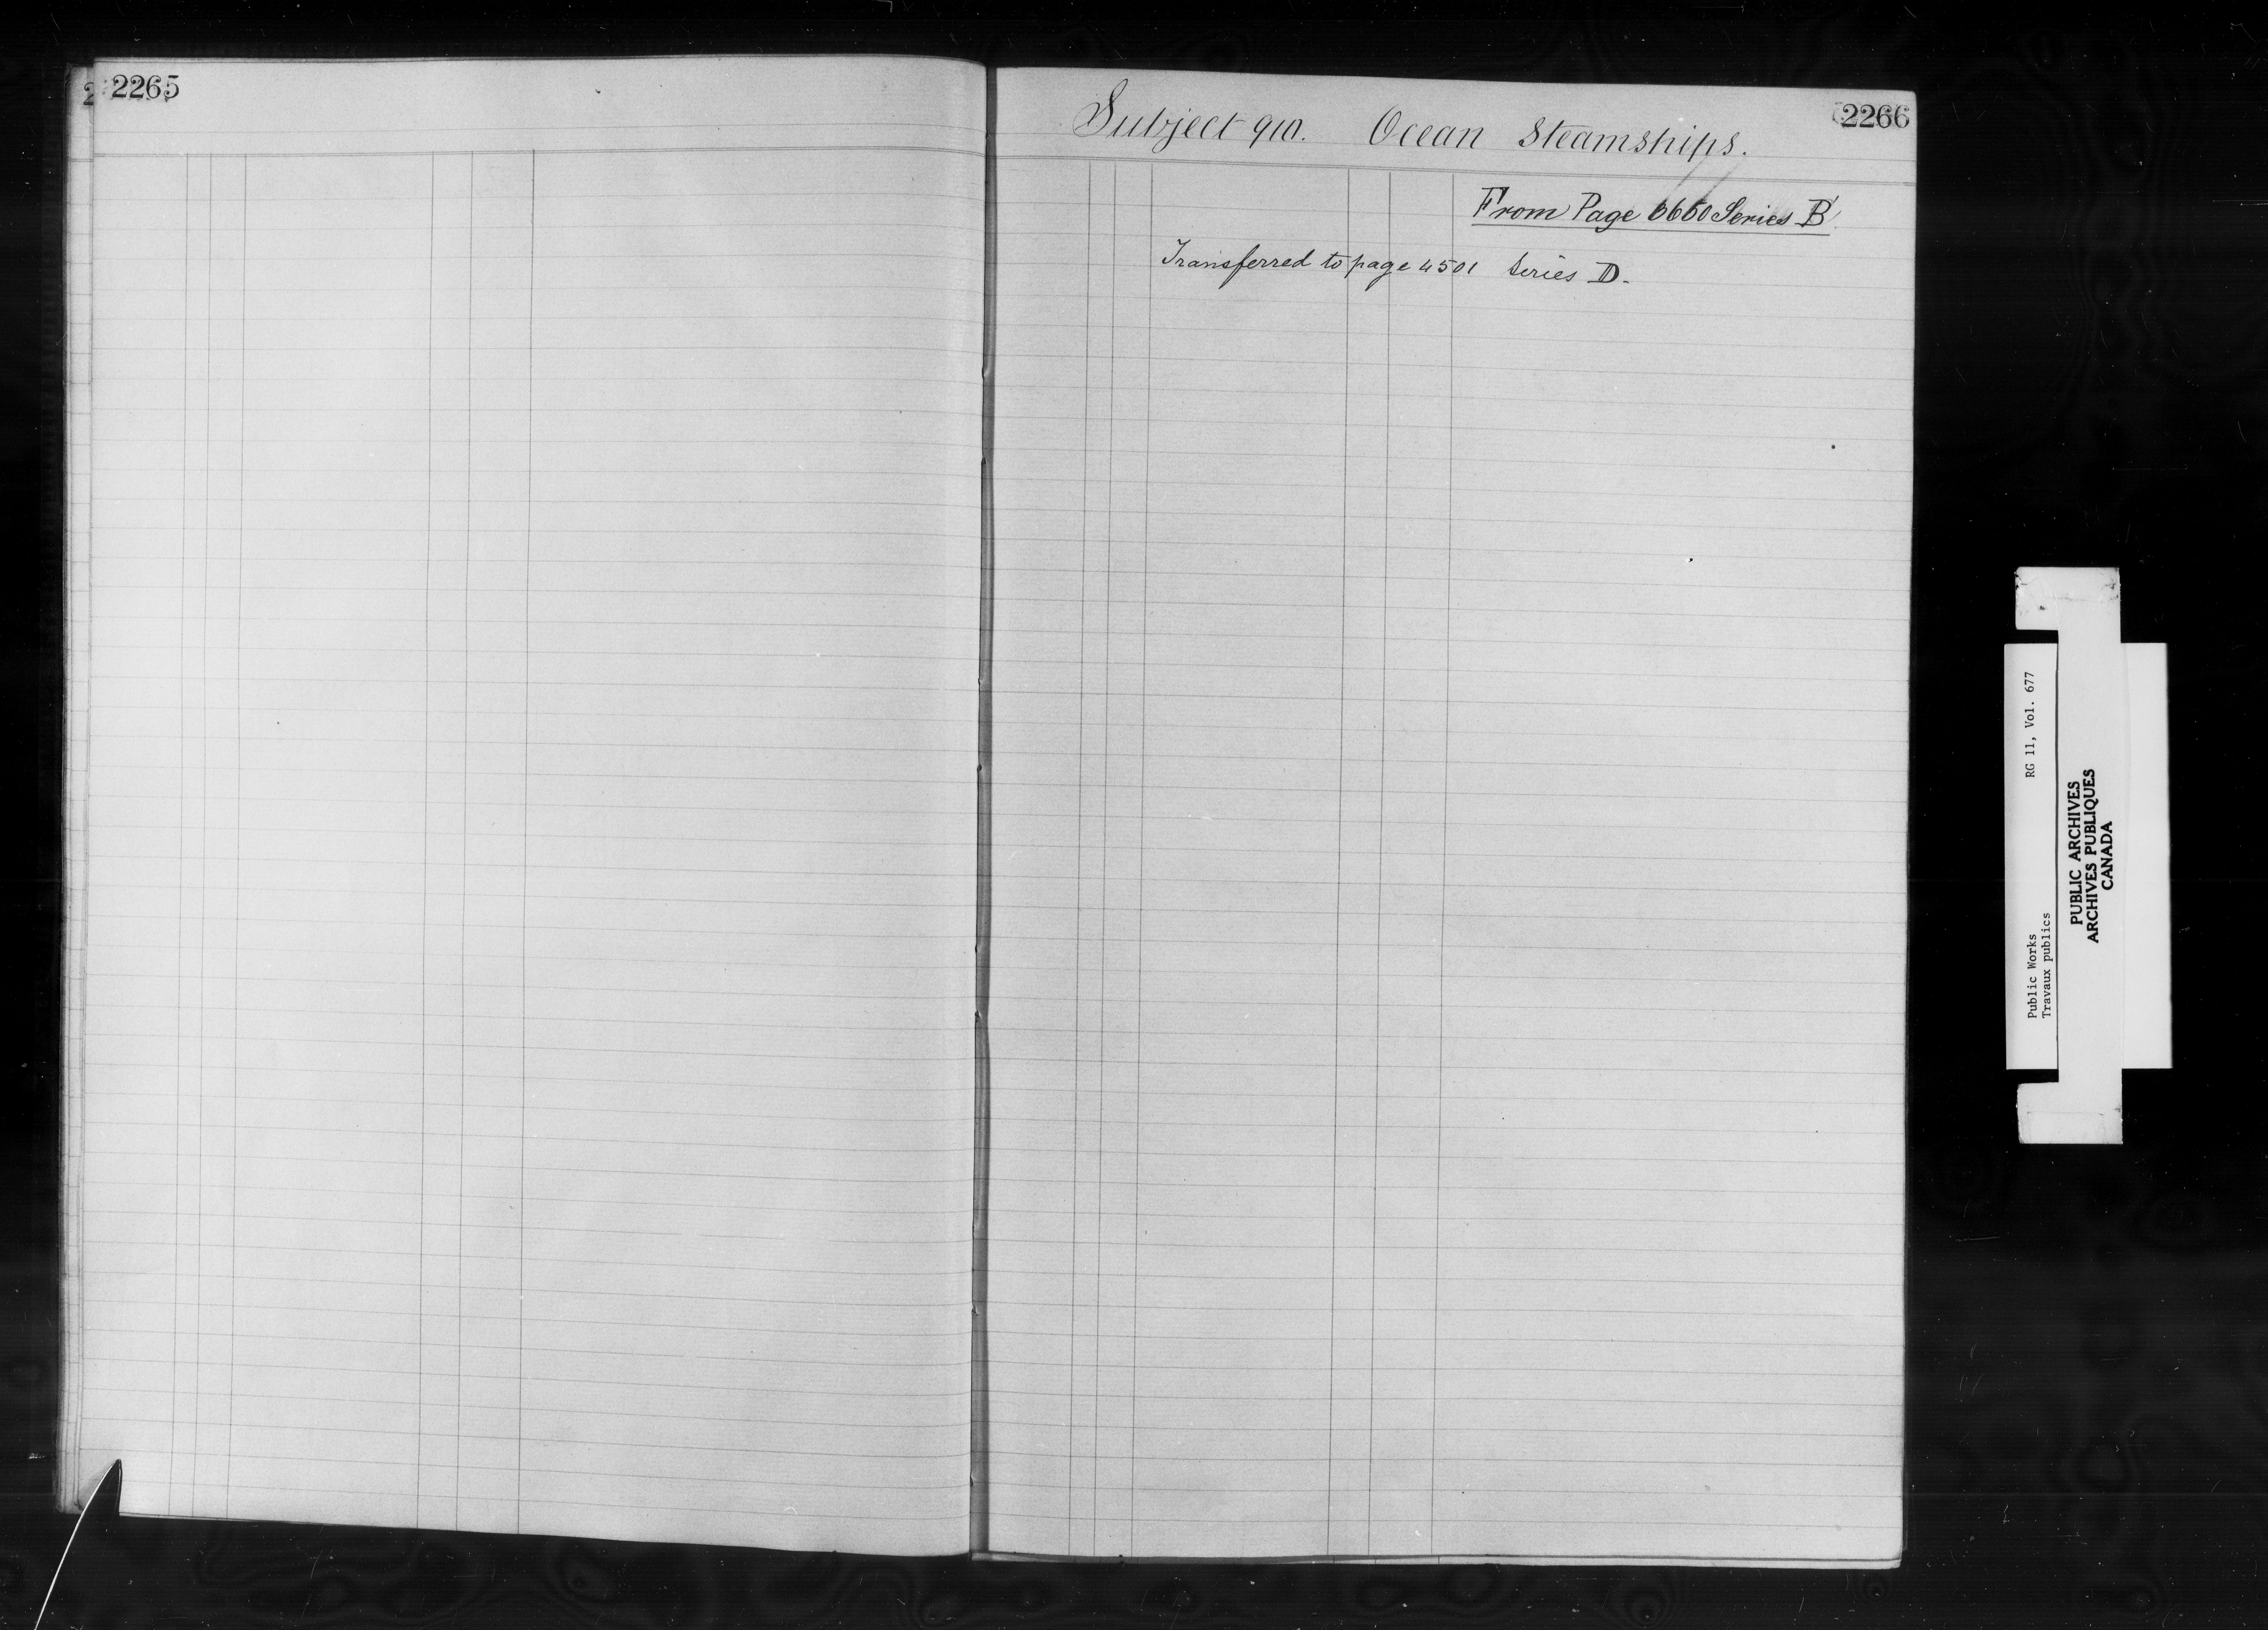 2265
2266
Subject 910. Ocean Steamships.
From Page 6660 Series B
Transferred to page 4501 Series D.
RG 11, Vol. 677
Public Works
Travaux publics
PUBLIC ARCHIVES
ARCHIVES PUBLIQUES
CANADA